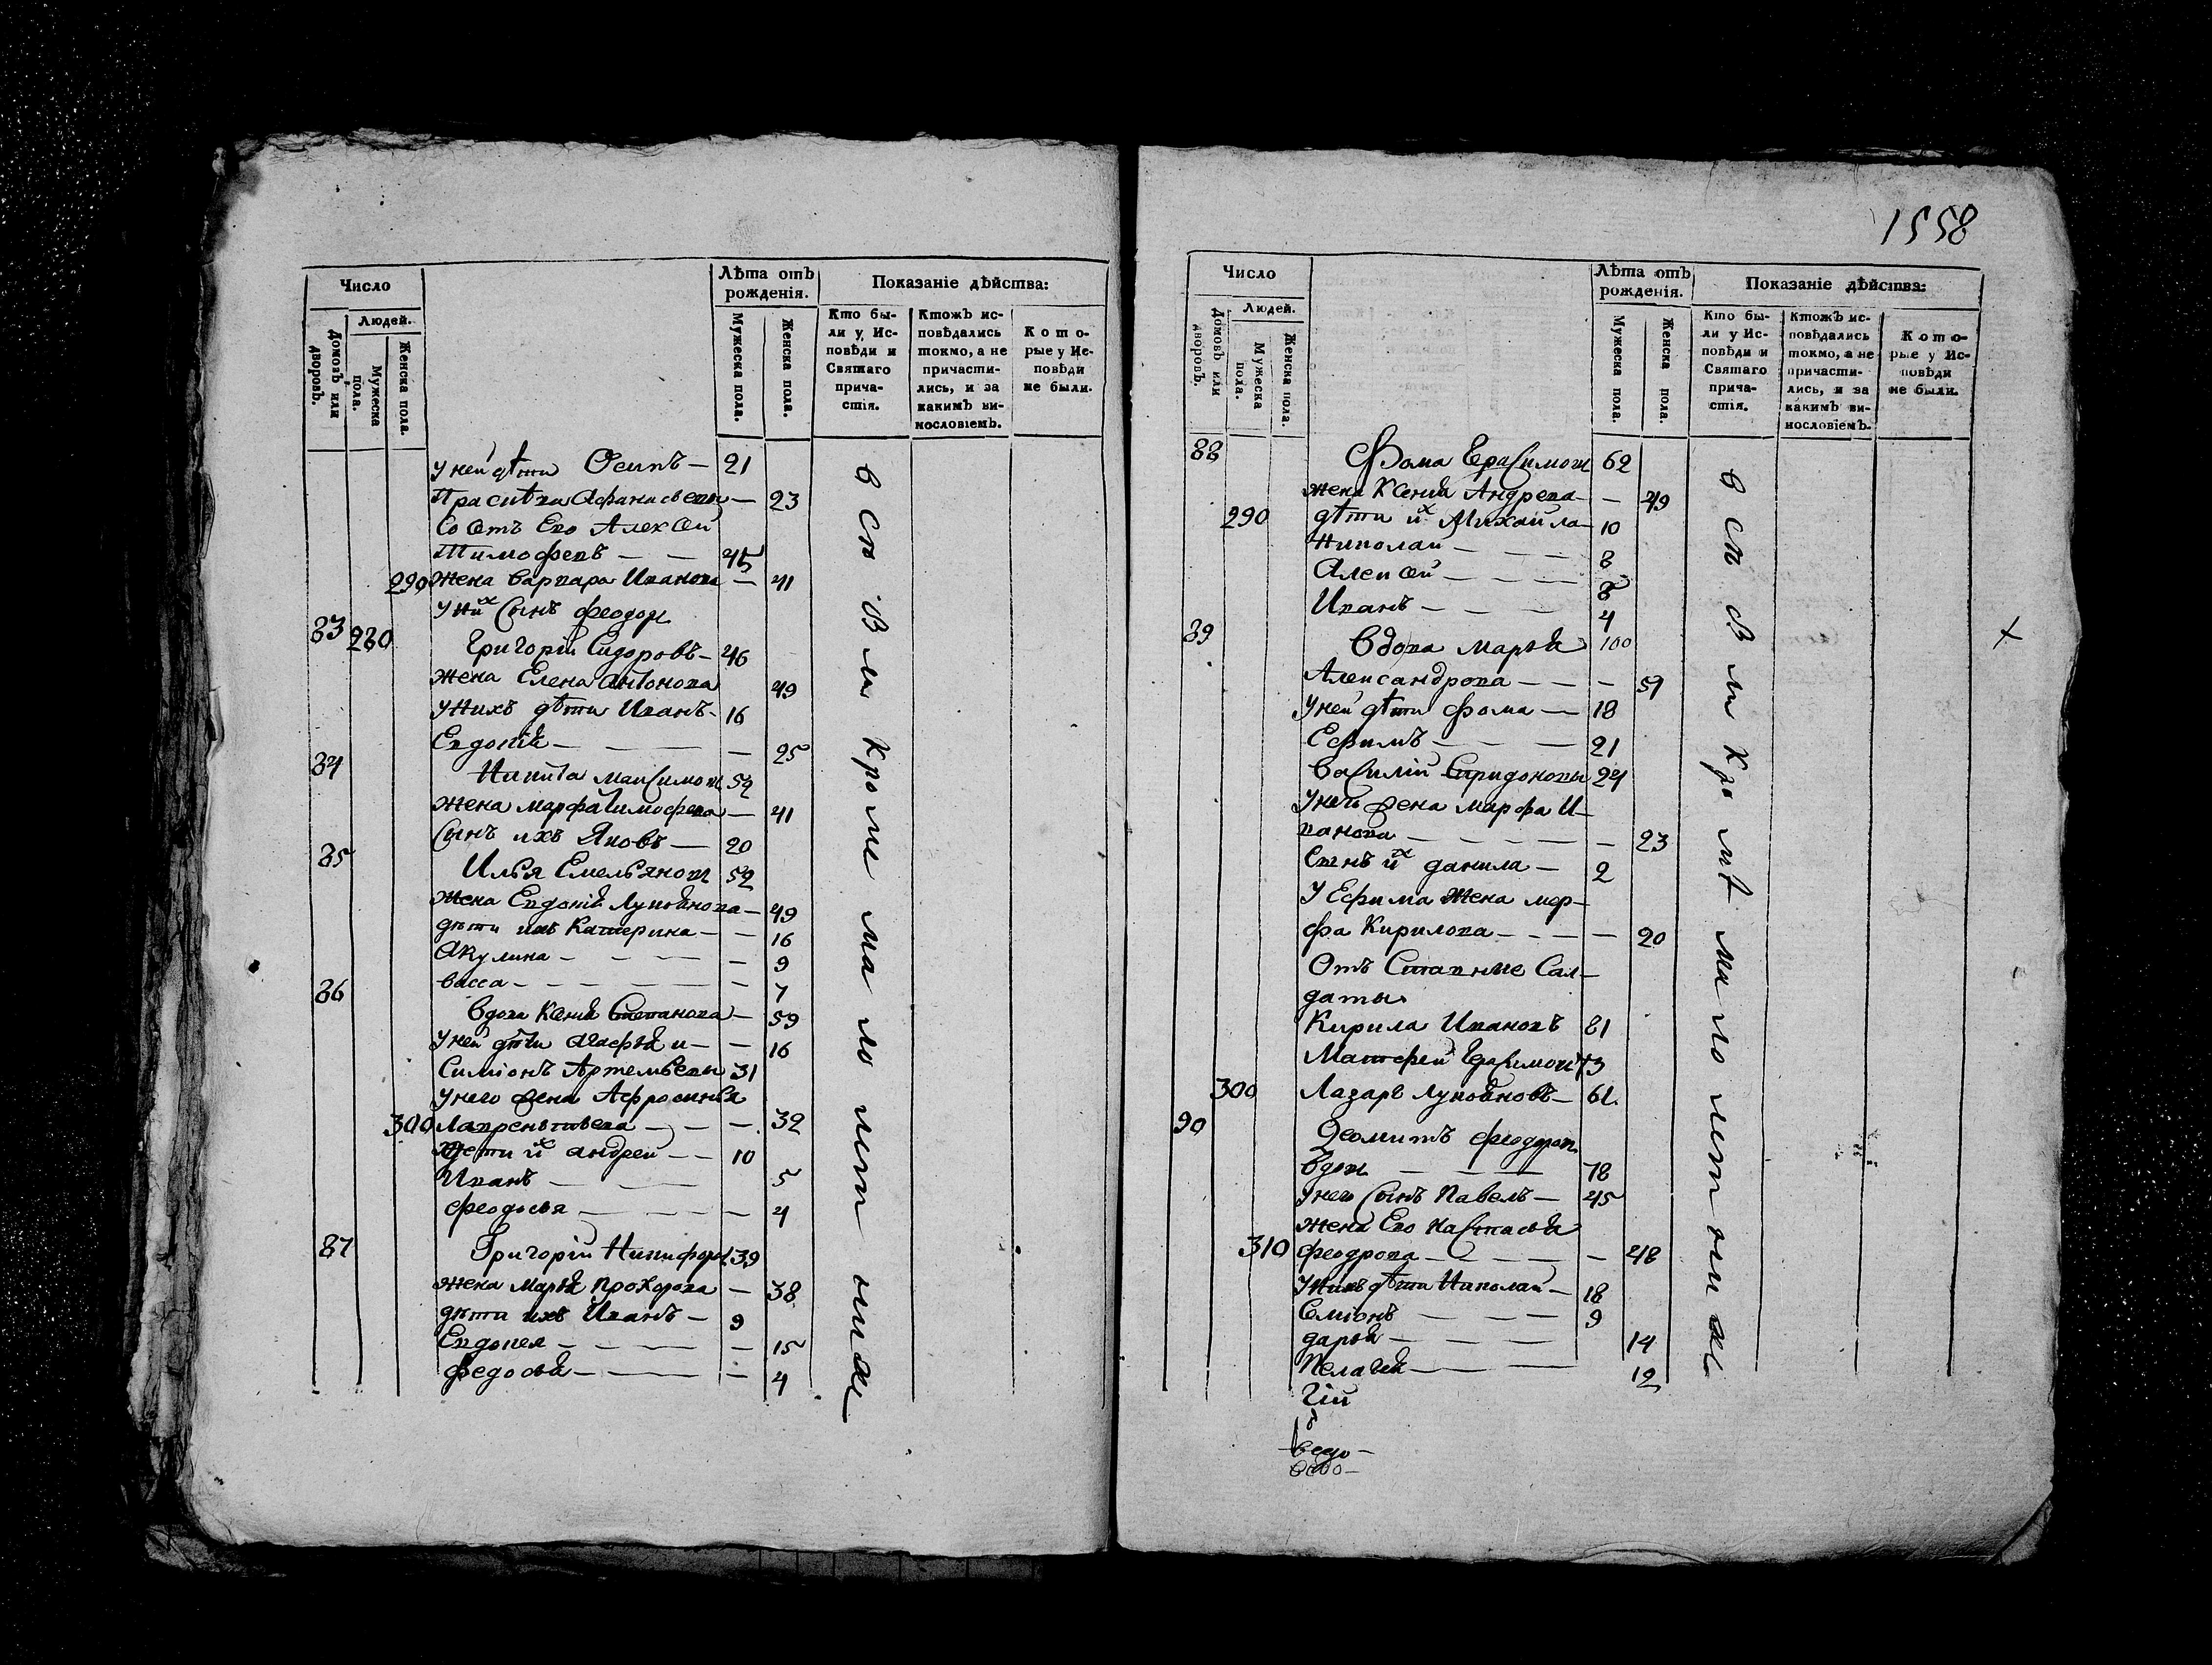 Число
Людей.
Домовъ или дворовъ.
Мужеска пола.
Женска пола.
Лѣта отъ рожденія.
Мужеска пола.
Женска пола.
Показаніе дѣйства:
Кто бы-
ли у Ис-
повѣди и
Святаго
прича-
стія.
Ктожъ ис-
повѣдались
токмо, а не
причасти-
лись, и за
какимъ ви-
нословіемъ.
К о т о-
рые у Ис-
повѣди
не были.
у ней дѣти Осипъ — 21
Афанасьевы — 23
Алексей
Тимофеевъ — — 45
290 жена варвара Иванова — 41
у них сынъ феодоръ
83 280 Григорій Сидоровъ — 46
жена Елена антонова 49
у нихъ дѣти Иванъ — 16
Евдокія — — — — 25
84 Никита максимовъ 52
жена марфа тимофеева — 41
сынъ ихъ Яковъ — 20
85 Илья Емельяновъ 52
жена Евдокія Лукьянова — 49
дѣти ихъ Катерина — — 16
Акулина — — — — 9
васса — — — — 7
86 вдова Ксенія Степанова — 59
у ней дѣти Агафья и — — 16
Симіонъ Артемьевы 31
у него жена Афросинья
300 Лаврентьева — — — 32
дети их андрей — — 10
Иванъ — — 5
феодосья — — — — 4
87 Григорій Никифоровъ 39
жена Марья Прохорова — 38
дѣти ихъ Иванъ — 9
Евдокея — — — — 15
федосья — — — — 4
вси Вли Кроме малолетныхъ
1558
Число
Людей.
Домовъ или дворовъ.
Мужеска пола.
Женска пола.
Лѣта отъ рожденія.
Мужеска пола.
Женска пола.
Показаніе дѣйства:
Кто бы-
ли у Ис-
повѣди и
Святаго
прича-
стія.
Ктожъ ис-
повѣдались
токмо, а не
причасти-
лись, и за
какимъ ви-
нословіемъ.
К о т о-
рые у Ис-
повѣди
не были.
88 Фома Ерасимовъ 62
жена Ксенія Андреева — — 49
290 дѣти их Михайла — 10
Николай — — — 8
Алексей — — — 8
Иванъ — — — 4
89 Вдова Марья 100
Александрова — — — 59
у ней дѣти фома — 18
Ефимъ — — — 21
василій Спиридоновы 24
у него жена марфа И-
ванова — — — — — 23
сынъ их данила — 2
У Ефима жена мар-
фа Кирилова — — — — 20
Отъ Ставные Сал-
даты
Кирила Ивановъ 81
Матфей Ерасимовъ 73
300 Лазарь Лукьяновъ — 61.
90 Деомитъ феодоров
вдов — — — 78
у него сынъ Павелъ — 45
жена Ево настасья
310 феодрова — — — — 48
у нихъ дѣти Николай — 18
Семіонъ — — — 9
дарья — — — 14
Пелагея — — 12
гій
ведо-